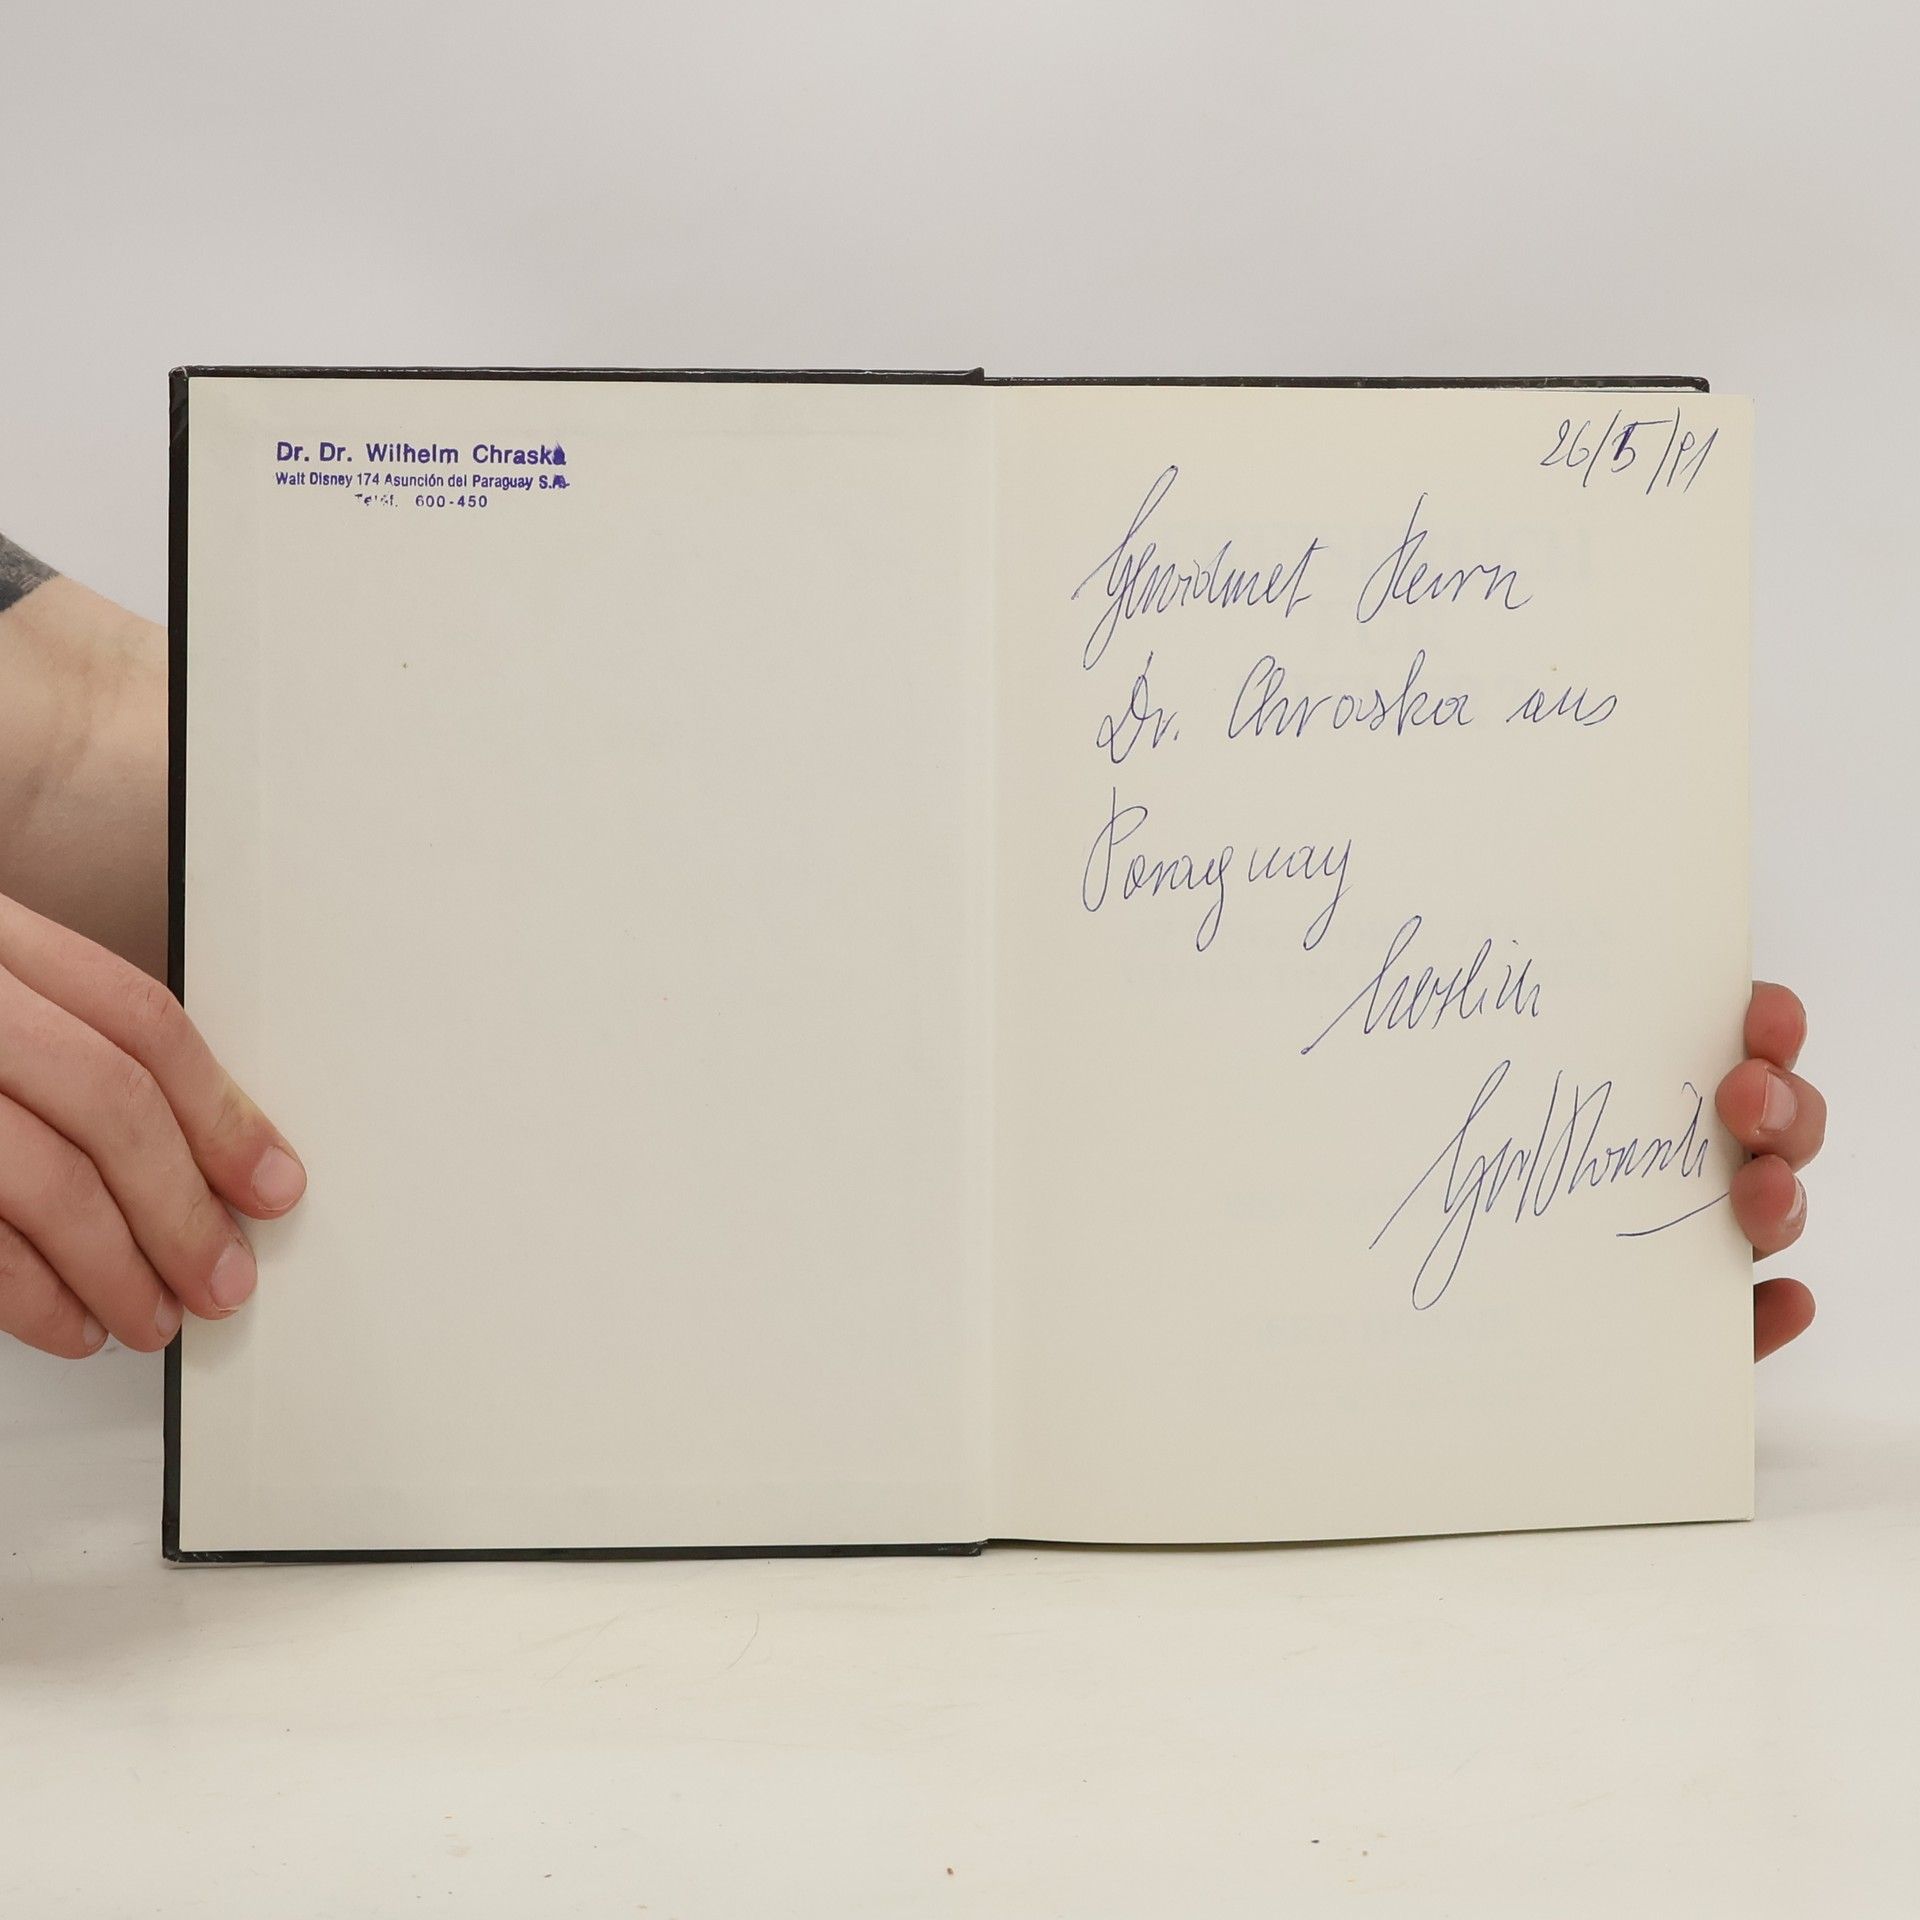 Dr. Dr. Wilhelm Chraska
Walt Disney 174 Asunción del Paraguay S.A.
Teléf. 600-450
26/5/91
Gewidmet Herrn
Dr. Chraska aus
Paraguay